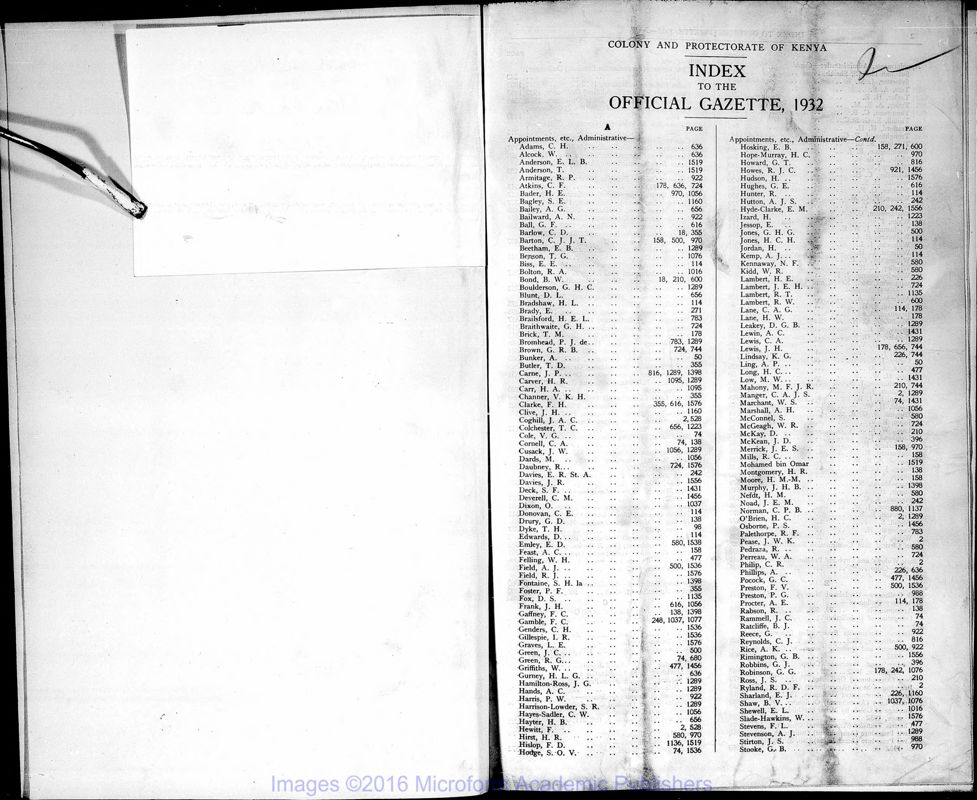 COLONY AND PROTECTORATE OF KENYA
INDEX
TO THE
OFFICIAL GAZETTE, 1932
A
PAGE
Appointments, etc., Administrative—
Adams, C. H. 636
Alcock, W. 636
Anderson, E. L. B. 1519
Anderson, T. 1519
Armitage, R. P. 922
Atkins, C. F. 178, 636, 724
Bader, H. E. 970, 1056
Bagley, S. E. 1160
Bailey, A. G. 656
Bailward, A. N. 922
Ball, G. F. 616
Barlow, C. D. 18, 355
Barton, C. J. J. T. 158, 500, 970
Beetham, E. B. 1289
Benson, T. G. 1076
Biss, E. E. 114
Bolton, R. A. 1016
Bond, B. W. 18, 210, 600
Boulderson, G. H. C. 1289
Blunt, D. L. 656
Bradshaw, H. L. 114
Brady, E. 271
Brailsford, H. E. L. 783
Braithwaite, G. H. 724
Brick, T. M. 178
Bromhead, P. J. de 783, 1289
Brown, G. R. B. 724, 744
Bunker, A. 50
Butler, T. D. 355
Carne, J. P. 816, 1289, 1398
Carver, H. R. 1095, 1289
Carr, H. A. 1095
Channer, V. K. H. 355
Clarke, F. H. 355, 616, 1576
Clive, J. H. 1160
Coghill, J. A. C. 2, 528
Colchester, T. C. 656, 1223
Cole, V. G. 74
Cornell, C. A. 74, 138
Cusack, J. W. 1056, 1289
Dards, M. 1056
Daubney, R. 724, 1576
Davies, E. R. St. A. 242
Davies, J. R. 1556
Deck, S. F. 1431
Deverell, C. M. 1456
Dixon, O. 1037
Donovan, C. E. 114
Drury, G. D. 138
Dyke, T. H. 98
Edwards, D. 114
Emley, E. D. 580, 1538
Feast, A. C. 158
Felling, W. H. 477
Field, A. J. 500, 1536
Field, R. J. 1576
Fontaine, S. H. la 1398
Foster, P. F. 355
Fox, D. S. 1135
Frank, J. H. 616, 1056
Gaffney, F. C. 138, 1398
Gamble, F. C. 248, 1037, 1077
Genders, C. H. 1536
Gillespie, I. R. 1536
Graves, L. E. 1576
Green, J. C. 500
Green, R. G. 74, 680
Griffiths, W. 477, 1456
Gurney, H. L. G. 636
Hamilton-Ross, J. G. 1289
Hands, A. C. 1289
Harris, P. W. 922
Harrison-Lowder, S. R. 1289
Hayes-Sadler, C. W. 1056
Hayter, H. B. 656
Hewitt, F. 2, 528
Hirst, H. R. 580, 970
Hislop, F. D. 1136, 1519
Hodge, S. O. V. 74, 1536
PAGE
Appointments, etc., Administrative—Contd.
Hosking, E. B. 158, 271, 600
Hope-Murray, H. C. 970
Howard, G. T. 816
Howes, R. J. C. 921, 1456
Hudson, H. 1576
Hughes, G. E. 616
Hunter, R. 114
Hutton, A. J. S. 242
Hyde-Clarke, E. M. 210, 242, 1556
Izard, H. 1223
Jessop, E. 138
Jones, G. H. G. 500
Jones, H. C. H. 114
Jordan, H. 50
Kemp, A. J. 114
Kennaway, N. F. 580
Kidd, W. R. 580
Lambert, H. E. 226
Lambert, J. E. H. 724
Lambert, R. T. 1135
Lambert, R. W. 600
Lane, C. A. G. 114, 178
Lane, H. W. 178
Leakey, D. G. B. 1289
Lewin, A. C. 1431
Lewis, C. A. 1289
Lewis, J. H. 178, 656, 744
Lindsay, K. G. 226, 744
Ling, A. P. 50
Long, H. C. 477
Low, M. W. 1431
Mahony, M. F. J. R. 210, 744
Manger, C. A. J. S. 2, 1289
Marchant, W. S. 74, 1431
Marshall, A. H. 1056
McConnel, S. 580
McGeagh, W. R. 724
McKay, D. 210
McKean, J. D. 396
Merrick, J. E. S. 158, 970
Mills, R. C. 158
Mohamed bin Omar 1519
Montgomery, H. R. 138
Moore, H. M.-M. 158
Murphy, J. H. B. 1398
Nefdt, H. M. 580
Noad, J. E. M. 242
Norman, C. P. B. 880, 1137
O'Brien, H. C. 2, 1289
Osborne, P. S. 1456
Palethorpe, R. F. 783
Pease, J. W. K. 2
Pedraza, R. 580
Perreau, W. A. 724
Philip, C. R. 2
Phillips, A. 226, 636
Pocock, G. C. 477, 1456
Preston, F. V. 500, 1536
Preston, P. G. 988
Procter, A. E. 114, 178
Rabson, R. 138
Rammell, J. C. 74
Ratcliffe, B. J. 74
Reece, G. 922
Reynolds, C. J. 816
Rice, A. K. 500, 922
Rimington, G. B. 1556
Robbins, G. J. 396
Robinson, G. G. 178, 242, 1076
Ross, J. S. 210
Ryland, R. D. F. 2
Sharland, E. J. 226, 1160
Shaw, B. V. 1037, 1076
Shewell, E. L. 1016
Slade-Hawkins, W. 1576
Stevens, F. L. 477
Stevenson, A. J. 1289
Stirton, J. S. 988
Stooke, G. B. 970
Images ©2016 Microform Academic Publishers